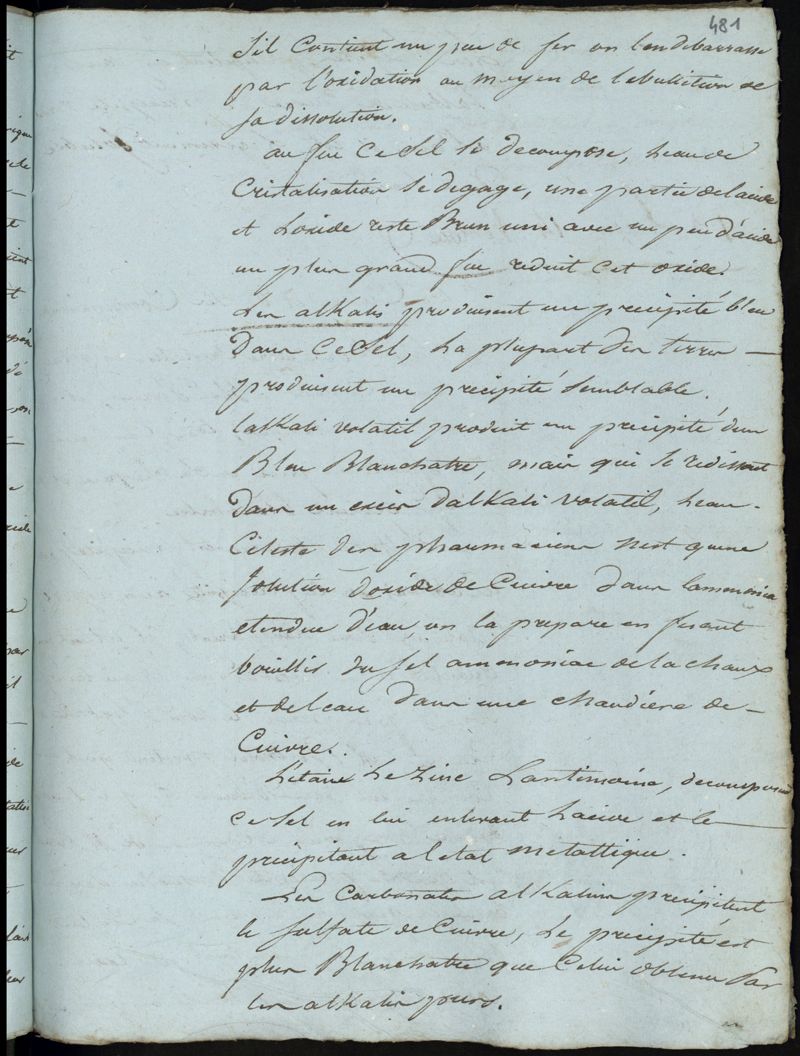 481
Sil Contient un peu de fer on l'en debarrasse
par l'oxidation au moyen de lebulition de
sa dissolution.
au feu Ce Sel se decompose, Leau de
Cristalisation se degage, une partie de lacide
et Loxide reste Brun uni avec un peu d'acide
un plus grand feu reduit cet oxide.
Les alKalis produisent un precipité bleu
dans Ce Sel, La plupart des terres —
produisent un precipité semblable.
lalKali volatil produit un precipité d'un
Bleu Blanchatre, mais qui se redissout
dans un excès dalKali volatil, Leau-
Céleste des pharmaciens n'est qu'une
solution doxide de Cuivre dans lammoniac
etendue d'eau, on la prepare en fesant
bouillir du sel ammoniac de la chaux
et de l'eau dans une chaudière de —
Cuivre.
L'etain Le Zinc Lantimoine, decomposent
ce Sel en lui enlevant Lacide et le —
précipitant a l'etat metallique.
Les Carbonates alKalins precipitent
le sulfate de Cuivre, Le precipité est
plus Blanchatre que Celui obtenu Par
les alKalis purs.